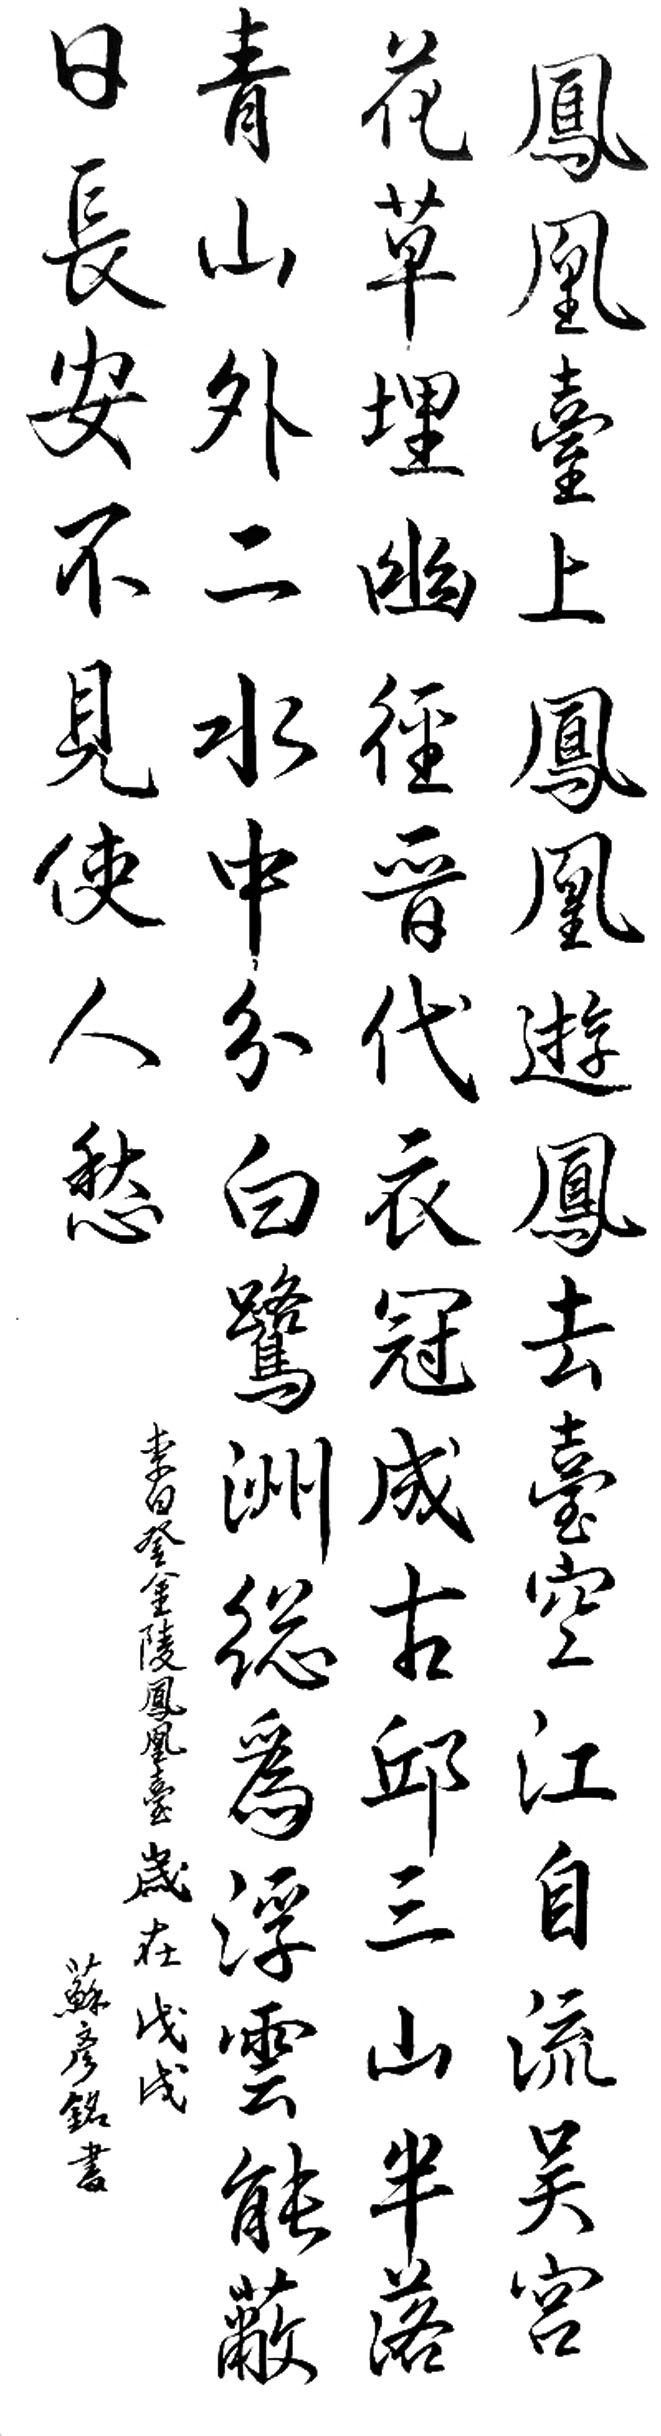 鳳凰臺上鳳凰遊鳳去臺空江自流吴宮
花草埋幽徑晉代衣冠成古邱三山半落
青山外二水中分白鷺洲総為浮雲能蔽
日長安不見使人愁
李白登金陵鳳凰臺歲在戊戌
蘇彥銘書